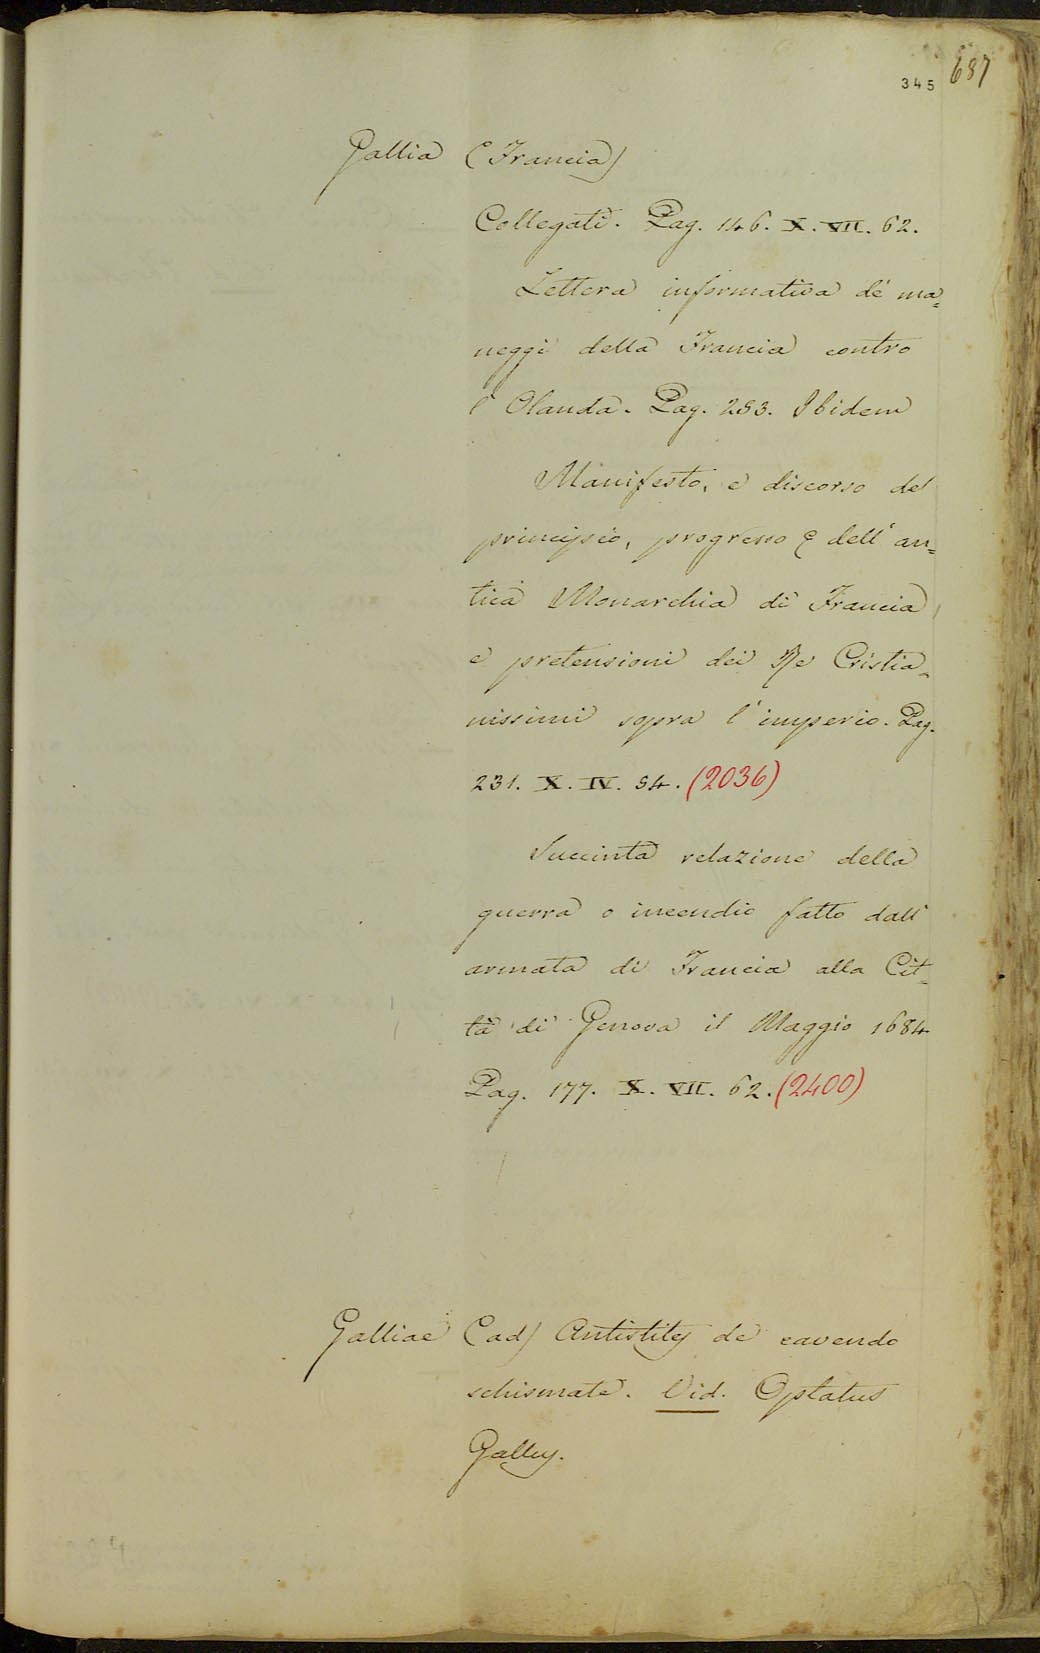 687
345
Gallia (Francia)
Collegati. Pag. 146. X. VII. 62.
Lettera informativa de' ma=
neggi della Francia contro
l' Olanda. Pag. 253. Ibidem
Manifesto, e discorso del
principio, progresso & dell' an=
tica Monarchia di Francia,
e pretensioni dei Re Cristia=
nissimi sopra l' imperio. Pag.
231. X. IV. 54. (2036)
Succinta relazione della
guerra o incendio fatto dall'
armata di Francia alla Cit=
tà di Genova il Maggio 1684
Pag. 177. X. VII. 62. (2400)
Galliae (ad) Antistites de cavendo
schismate. Vid. Optatus
Gallus.